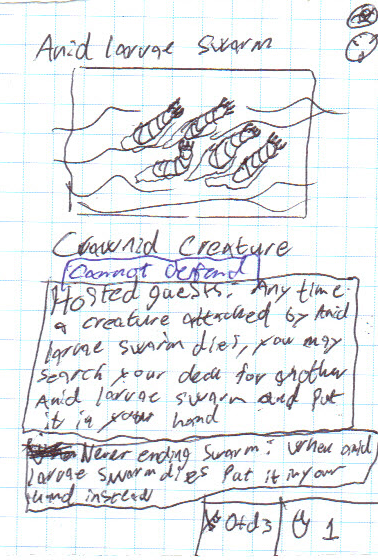 Anid larvae swarm
Crawnid Creature
Cannot Defend
Hosted guests: Any time
a creature attacked by Anid
larvae swarm dies, you may
search your deck for another
Anid larvae swarm and put
it in your hand
Never ending swarm: when anid
larvae swarm dies put it in your
hand instead
1